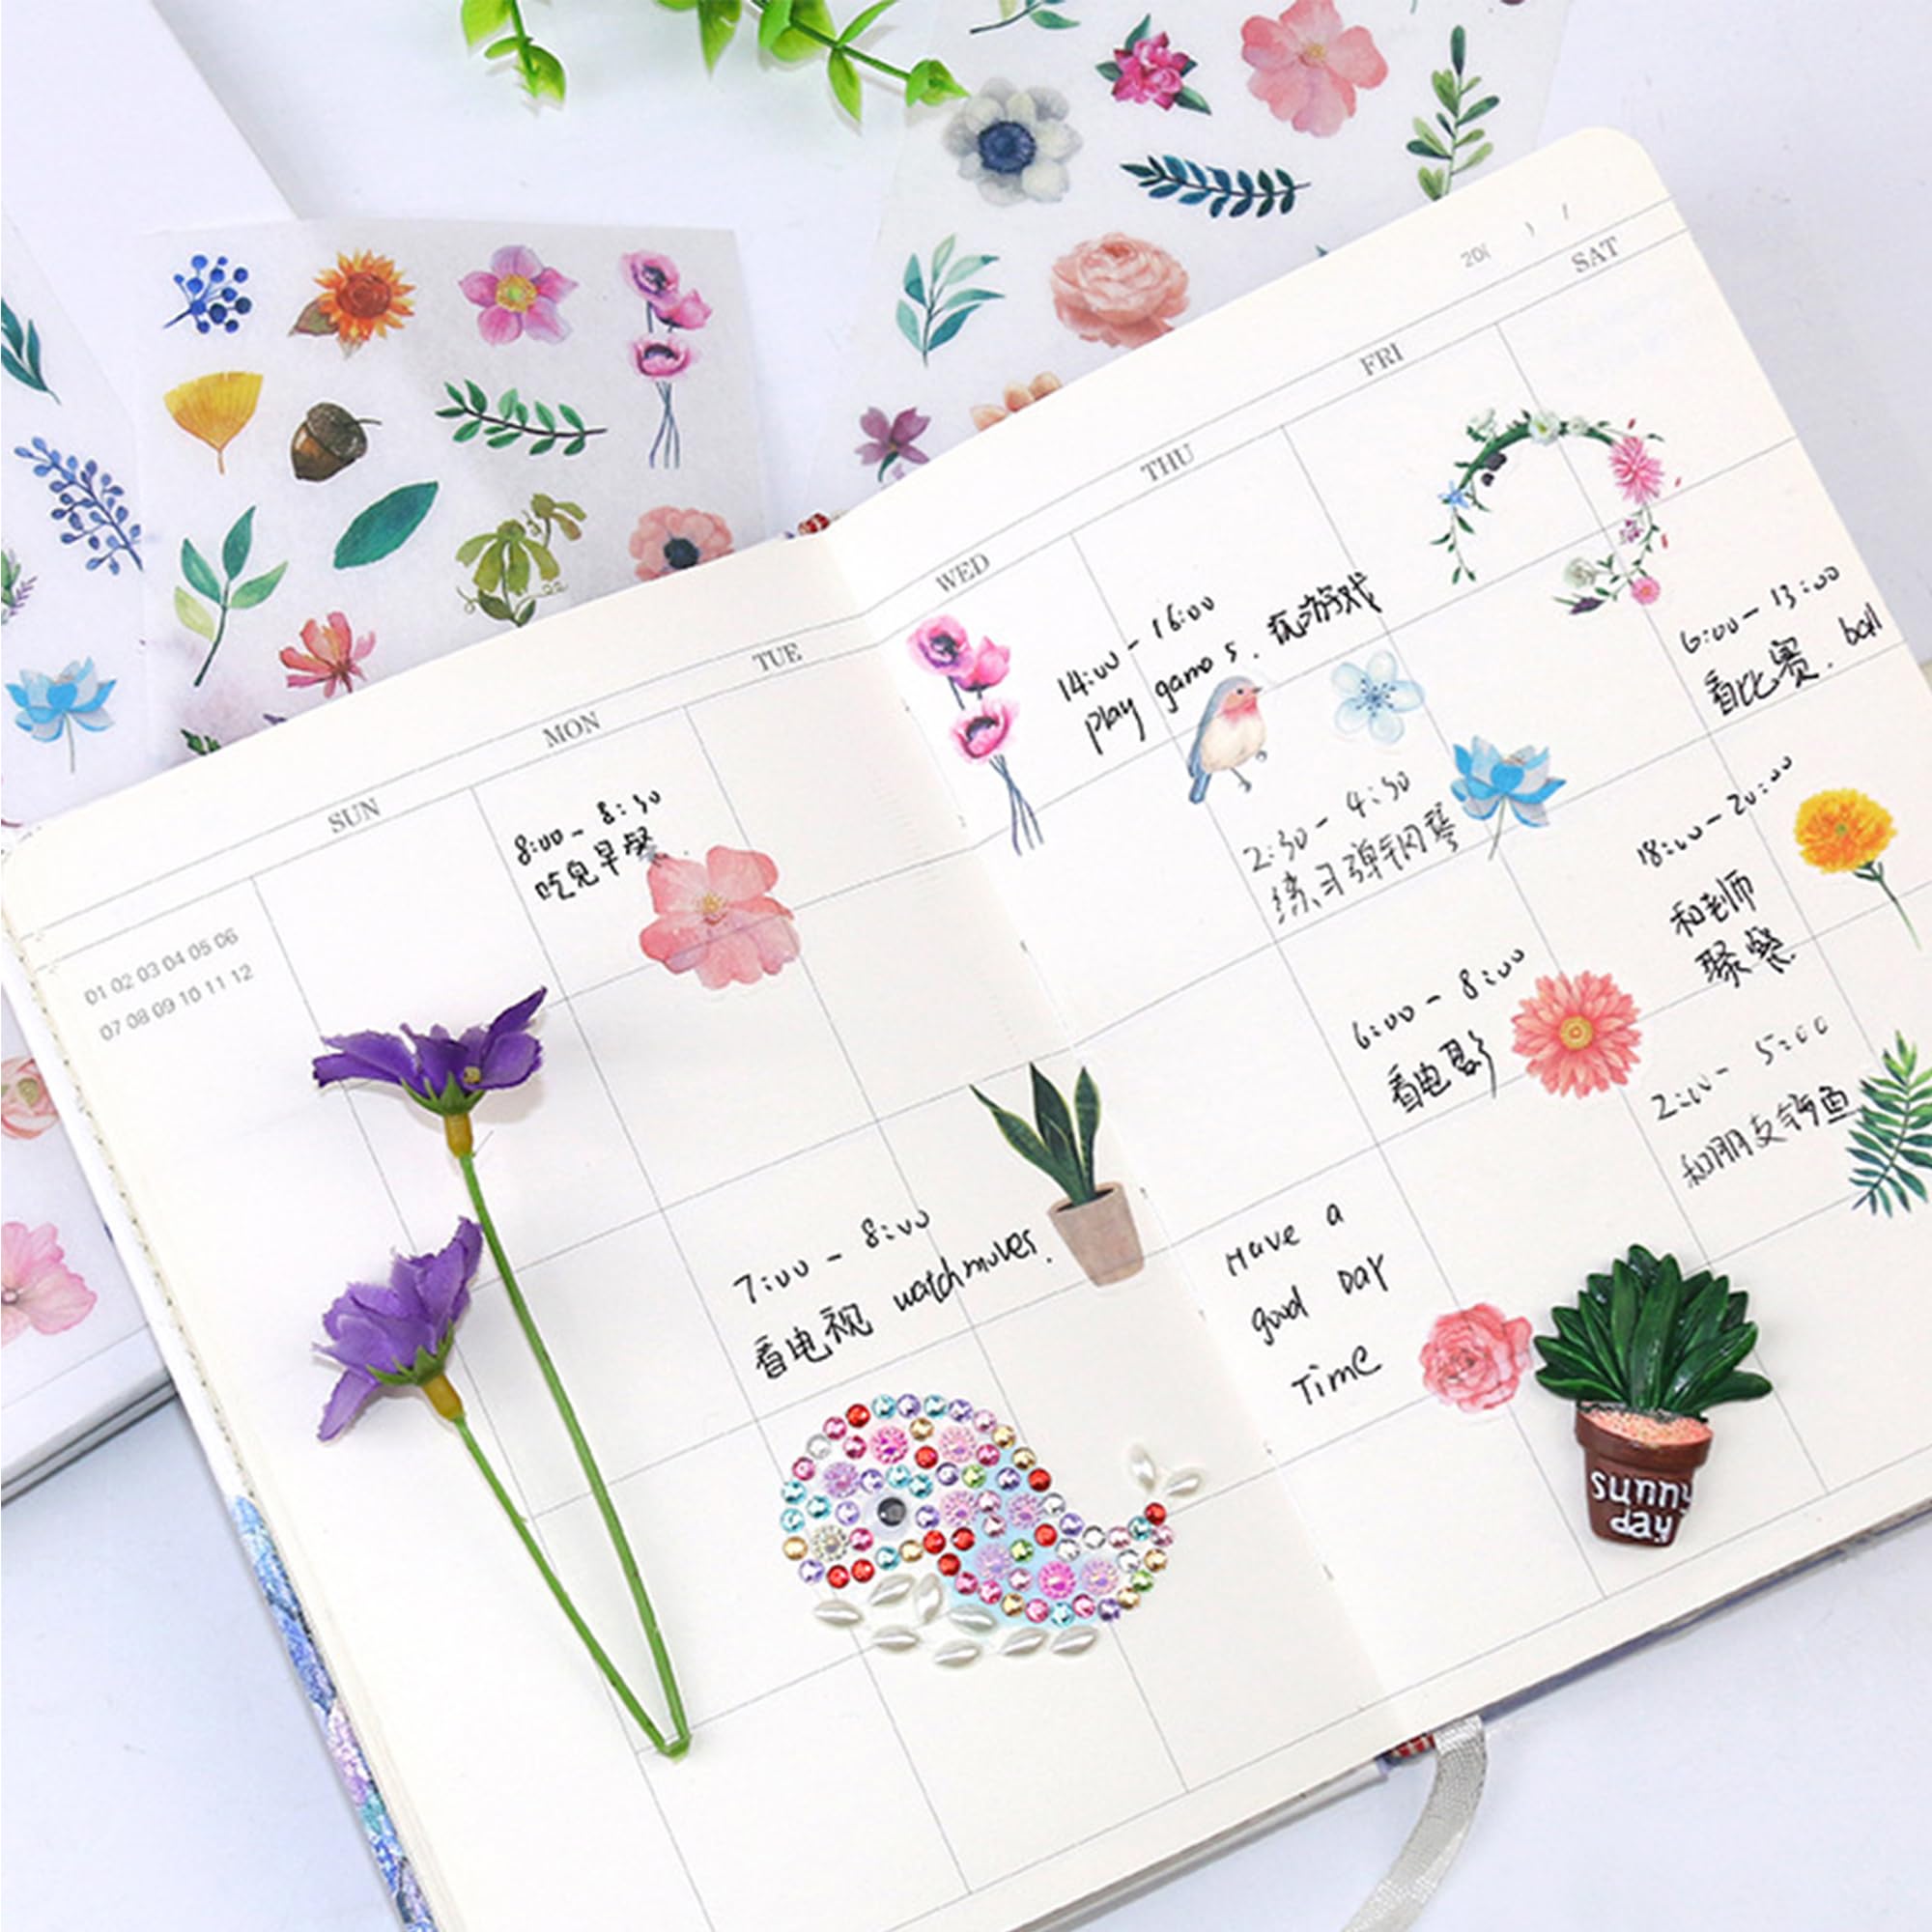 20( ) /
SUN
MON
TUE
WED
THU
FRI
SAT
01 02 03 04 05 06
07 08 09 10 11 12
8:00 - 8:30
吃兒早餐
14:00 - 16:00
play games. 玩游戏
6:00 - 13:00
看比赛. ball
2:30 - 4:30
练习弹钢琴
18:00 - 20:00
和老师
聚餐
6:00 - 8:00
看电影
2:00 - 5:00
和朋友钓鱼
7:00 - 8:00
看电视 watch movies.
Have a
good Day
Time
sunny
day